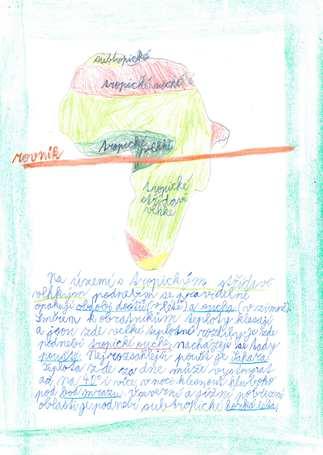 subtropické
tropické suché
rovník
tropické vlhké
tropické
střídavě
vlhké
Na území s tropickým střídavě
vlhkým podnebím se pravidelně
opakují období dešťů (v létě) a sucha (v zimě).
Směrem k obratníkům teploty klesají
a jsou zde velké teplotní rozdíly, je zde
podnebí tropické suché nacházejí se tady
pouště. Nejrozsáhlejší pouští je Sahara
teplota zde ve dne může vystoupat
až na 40°C i více, v noci klesnout hluboko
pod bod mrazu. Severní a jižní pobřežní
oblasti je podnebí subtropické